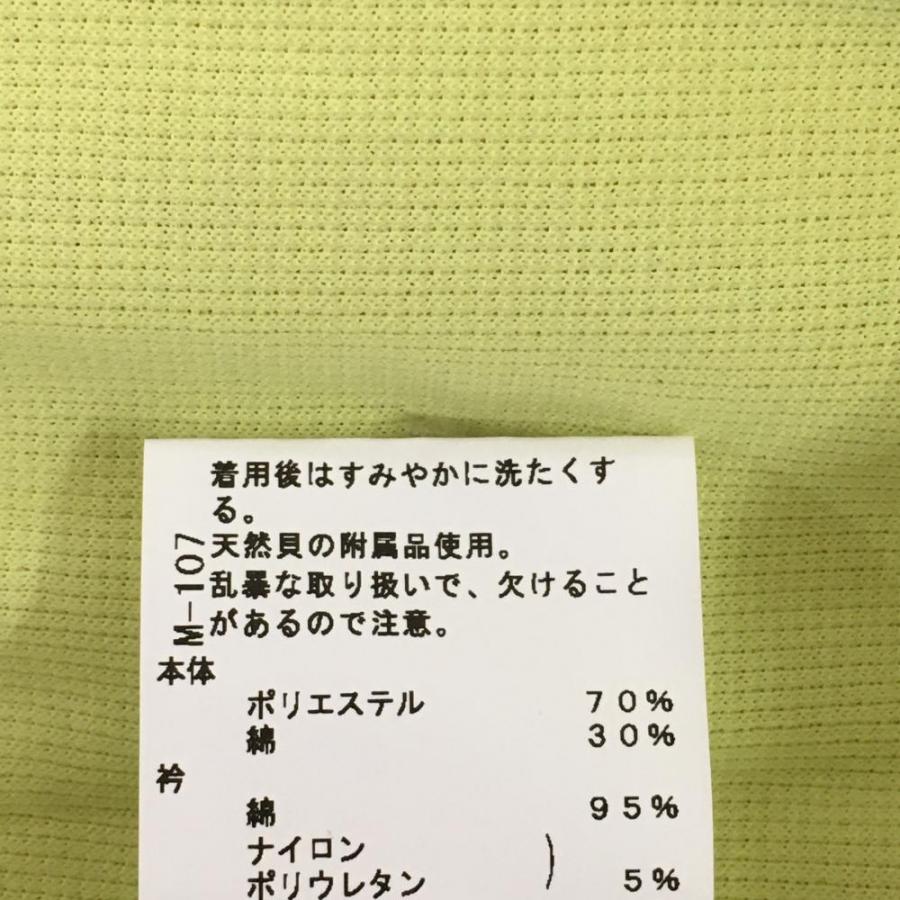 着用後はすみやかに洗たくす
る。
天然貝の附属品使用。
乱暴な取り扱いで、欠けること
があるので注意。
M-107
本体
ポリエステル 70%
綿 30%
衿
綿 95%
ナイロン )
ポリウレタン 5%